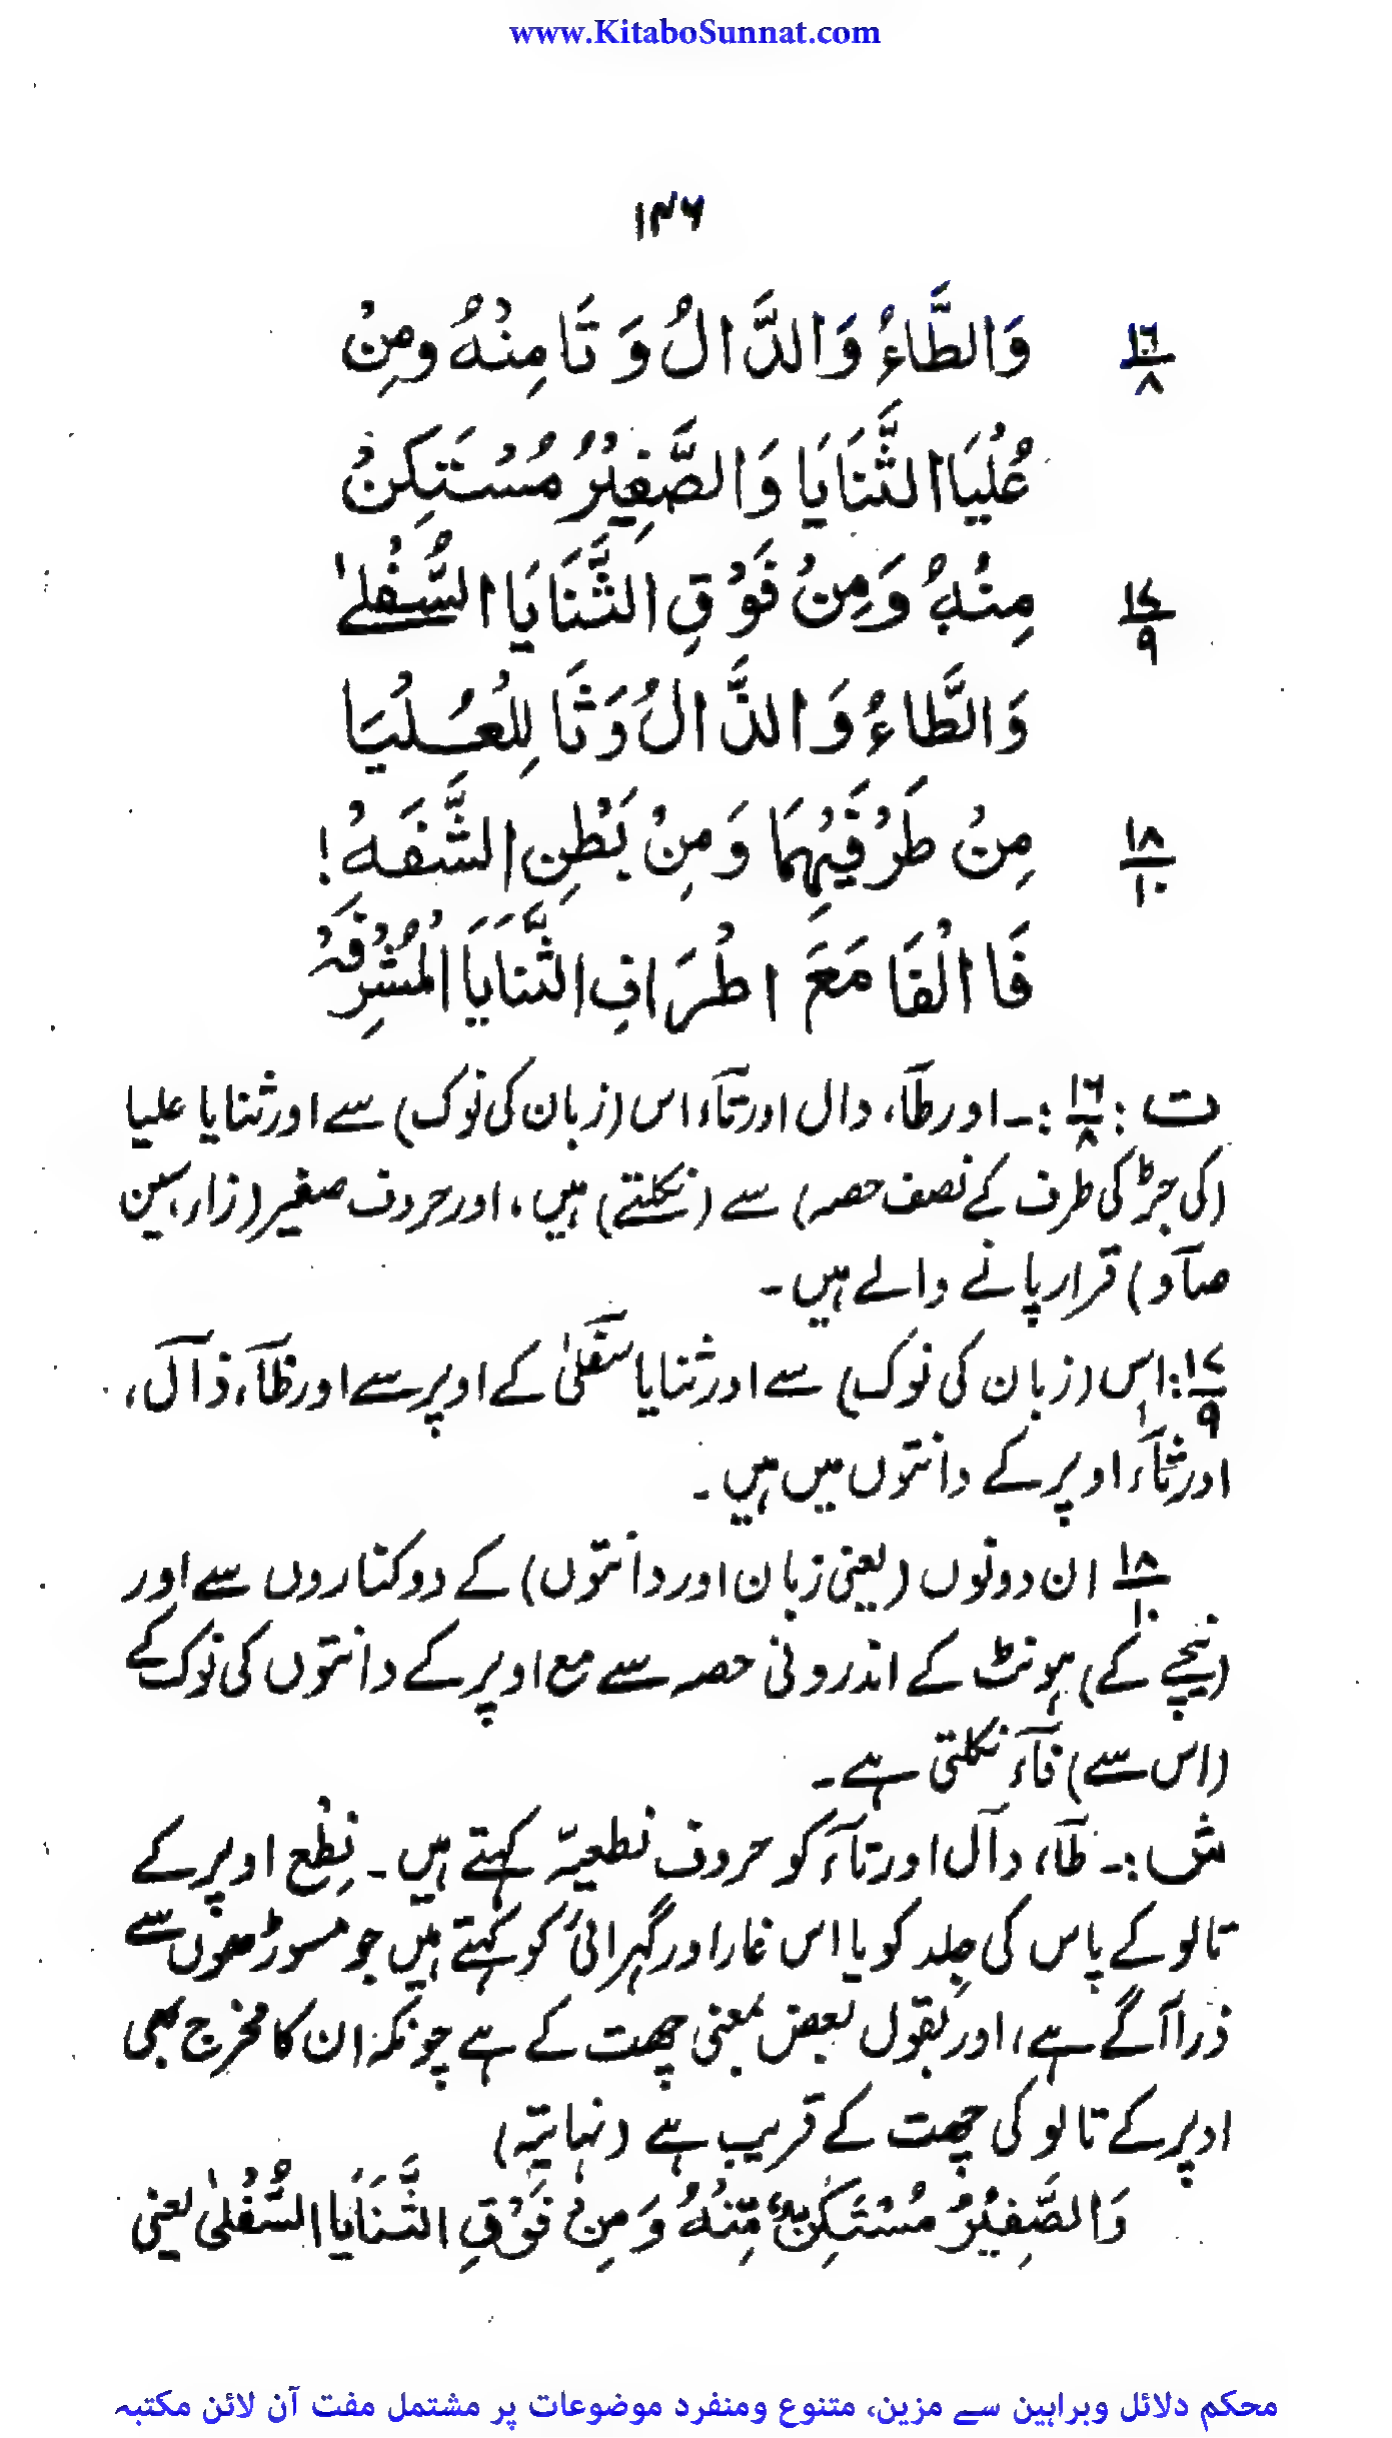 www.KitaboSunnat.com
۱۴۶
۱۶/۸ وَالطَّاءُ وَالدَّالُ وَتَا مِنْهُ ومِنْ
عُلْيَا الثَّنَايَا وَالصَّفِيْرُ مُسْتَكِنْ
۱۷/۹ مِنْهُ وَمِنْ فَوْقِ الثَّنَايَا السُّفْلٰے
وَالظَّاءُ وَالذَّالُ وَثَا لِلْعُلْيَا
۱۸/۱۰ مِنْ طَرْفَيْهِمَا وَمِنْ بَطْنِ الشَّفَهْ !
فَا الْفَا مَعَ اطْرَافِ الثَّنَايَا الْمُشْرِفَهْ
ت : ۱۶/۸ :۔ اور طآ، دال اور تآء اس (زبان کی نوک) سے اور ثنایا علیا
(کی جڑ کی طرف کے نصف حصہ) سے (نکلتے) ہیں، اور حروف صفیر (زار، سین
صآد) قرار پانے والے ہیں۔
۱۷/۹ : اس (زبان کی نوک) سے اور ثنایا سفلیٰ کے اوپر سے اور ظآ، ذآل،
اور ثآء اوپر کے دانتوں میں ہیں۔
۱۸/۱۰ ان دونوں (یعنی زبان اور دانتوں) کے دو کناروں سے اور
(نیچے کے) ہونٹ کے اندرونی حصہ سے مع اوپر کے دانتوں کی نوک کے
(اس سے) فآء نکلتی ہے۔
ش :۔ طآ، دآل اور تآء کو حروف نطعیہ کہتے ہیں۔ نِطْع اوپر کے
تالو کے پاس کی جِلد کو یا اس غار اور گہرائی کو کہتے ہیں جو مسوڑھوں سے
ذرا آگے ہے، اور بقول بعض بمعنی چھت کے ہے چونکہ ان کا مخرج بھی
اوپر کے تالو کی چھت کے قریب ہے (نہایۃ)
وَالصَّفِيْرُ مُسْتَكِنٌّ مِّنْهُ وَمِنْ فَوْقِ الثَّنَايَا السُّفْلیٰ یعنی
محکم دلائل وبراہین سے مزین، متنوع ومنفرد موضوعات پر مشتمل مفت آن لائن مکتبہ